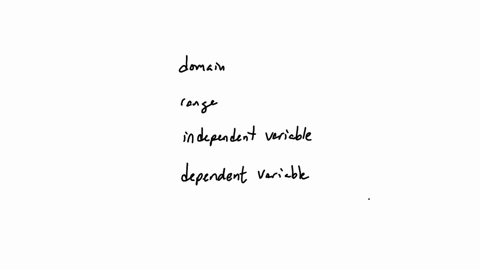 domain
range
independent variable
dependent variable